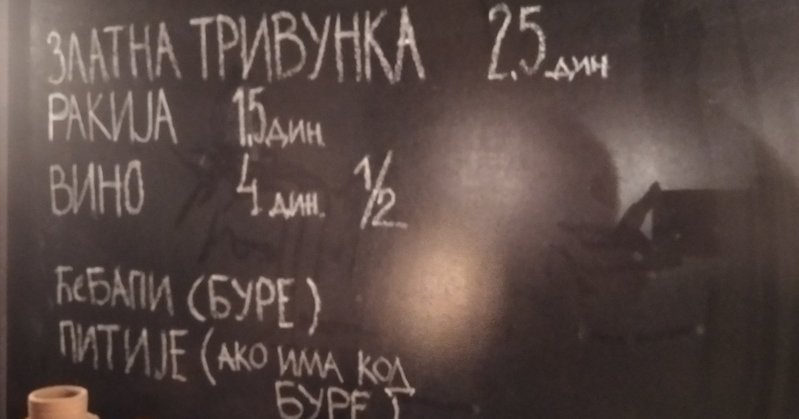 ЗЛАТНА ТРИВУНКА 2,5 дин
РАКИЈА 1,5 дин.
ВИНО 4 дин. 1/2
ЋеБАПИ (БУРЕ)
ПИТИЈЕ (АКО ИМА КОД
БУРЕ)